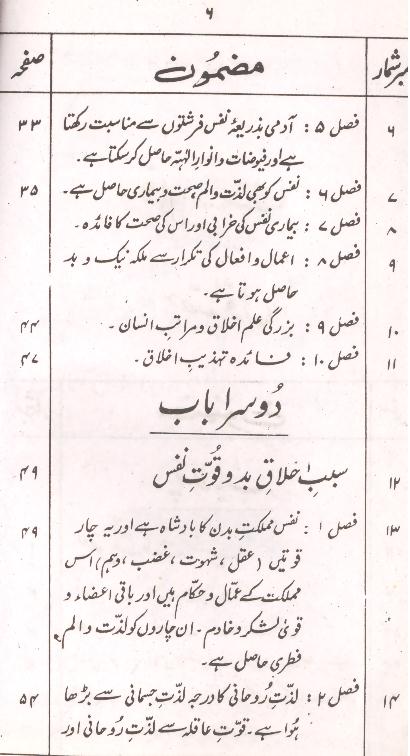 ۶
نمبر شمار مضمون صفحہ
۶ فصل ۵ : آدمی بذریعۂ نفس فرشتوں سے مناسبت رکھتا ۳۳
ہے اور فیوضات و انوار الٰہیّہ حاصل کر سکتا ہے۔
۷ فصل ۶ : نفس کو بھی لذّت و الم صحت و بیماری حاصل ہے۔ ۳۵
۸ فصل ۷ : بیماری نفس کی خرابی اور اس کی صحت کا فائدہ۔
۹ فصل ۸ : اعمال و افعال کی تکرار سے ملکہ نیک و بد
حاصل ہوتا ہے۔
۱۰ فصل ۹ : بزرگی علم اخلاق و مراتب انسان۔ ۴۴
۱۱ فصل ۱۰ : فائدہ تہذیبِ اخلاق۔ ۴۷
دُوسرا باب
۱۲ سببِ اخلاقِ بد و قوّتِ نفس ۴۹
۱۳ فصل ۱ : نفس مملکتِ بدن کا بادشاہ ہے اور یہ چار ۴۹
قوتیں (عقل، شہوت، غضب، وہم) اس
مملکت کے عمّال و حکّام ہیں اور باقی اعضاء و
قویٰ لشکر و خادم۔ ان چاروں کو لذّت و الم
فطری حاصل ہے۔
۱۴ فصل ۲ : لذّتِ رُوحانی کا درجہ لذّتِ جسمانی سے بڑھا ۵۴
ہُوا ہے۔ قوّتِ عاقلہ سے لذّتِ رُوحانی اور